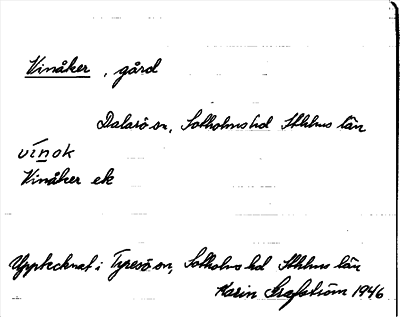 Vinåker, gård
Dalarö sn, Sotholms hd Sthlms län
vinok
Vinåker ek
Upptecknat i Tyresö sn, Sotholms hd Sthlms län
Karin Grafström 1946